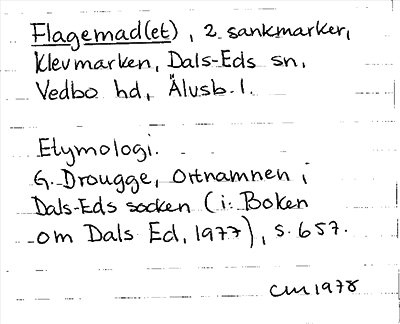 Flagemad(et), 2 sankmarker,
Klevmarken, Dals-Eds sn,
Vedbo hd, Älvsb. l.
Etymologi.
G. Drougge, Ortnamnen i
Dals-Eds socken (i: Boken
om Dals Ed, 1977), s. 657.
CM 1978